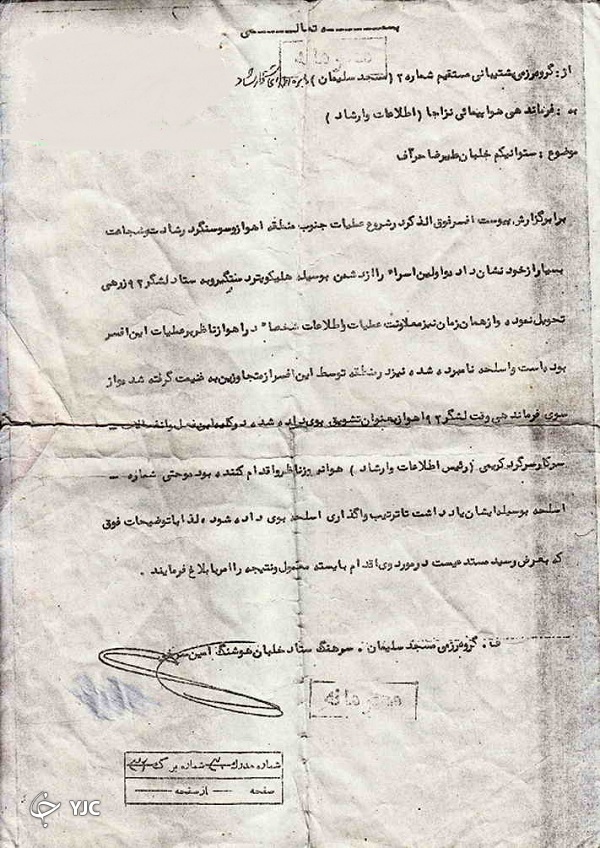 بسمه تعالی
محرمانه
از : گروه رزمی پشتیبانی مستقیم شماره ۲ ( مسجد سلیمان )
به : فرماندهی هوا پیمائی نزاجا ( اطلاعات و ارشاد )
موضوع : ستوانیکم خلبان علیرضا حراف
برابر گزارش پیوست افسر فوق الذکر در شروع عملیات جنوب منطقه اهواز و سوسنگرد رشادت و شجاعت
بسیار از خود نشان داده و اولین اسراء را از دشمن بوسیله هلیکوپتر دستگیر و به ستاد لشگر ۹۲ زرهی
تحویل نموده و از همان زمان نیز معاونت عملیات و اطلاعات شخصا" در اهواز ناظر بر عملیات این افسر
بوده است و اسلحه نامبرده شده نیز در منطقه توسط این افسر از متجاوزین به غنیمت گرفته شده و از
سوی فرماندهی وقت لشگر ۹۲ اهواز بعنوان تشویق بوی داده شده در کلیه این فعل و انفعالات -
سرکار سرگرد کریمی ( رئیس اطلاعات و ارشاد ) هوانیروز ناظر و اقدام کننده بوده و حتی شماره -
اسلحه بوسیله ایشان یادداشت تا ترتیب واگذاری اسلحه بوی داده شود لذا با توضیحات فوق
که بعرض رسید مستدعیست در مورد وی اقدام بایسته معمول و نتیجه را امر با بلاغ فرمایند .
ف . گروه رزمی مسجد سلیمان . سرهنگ ستاد خلبان هوشنگ امین
محرمانه
شماره مدرک شماره برگ
صفحه از صفحه
YJC